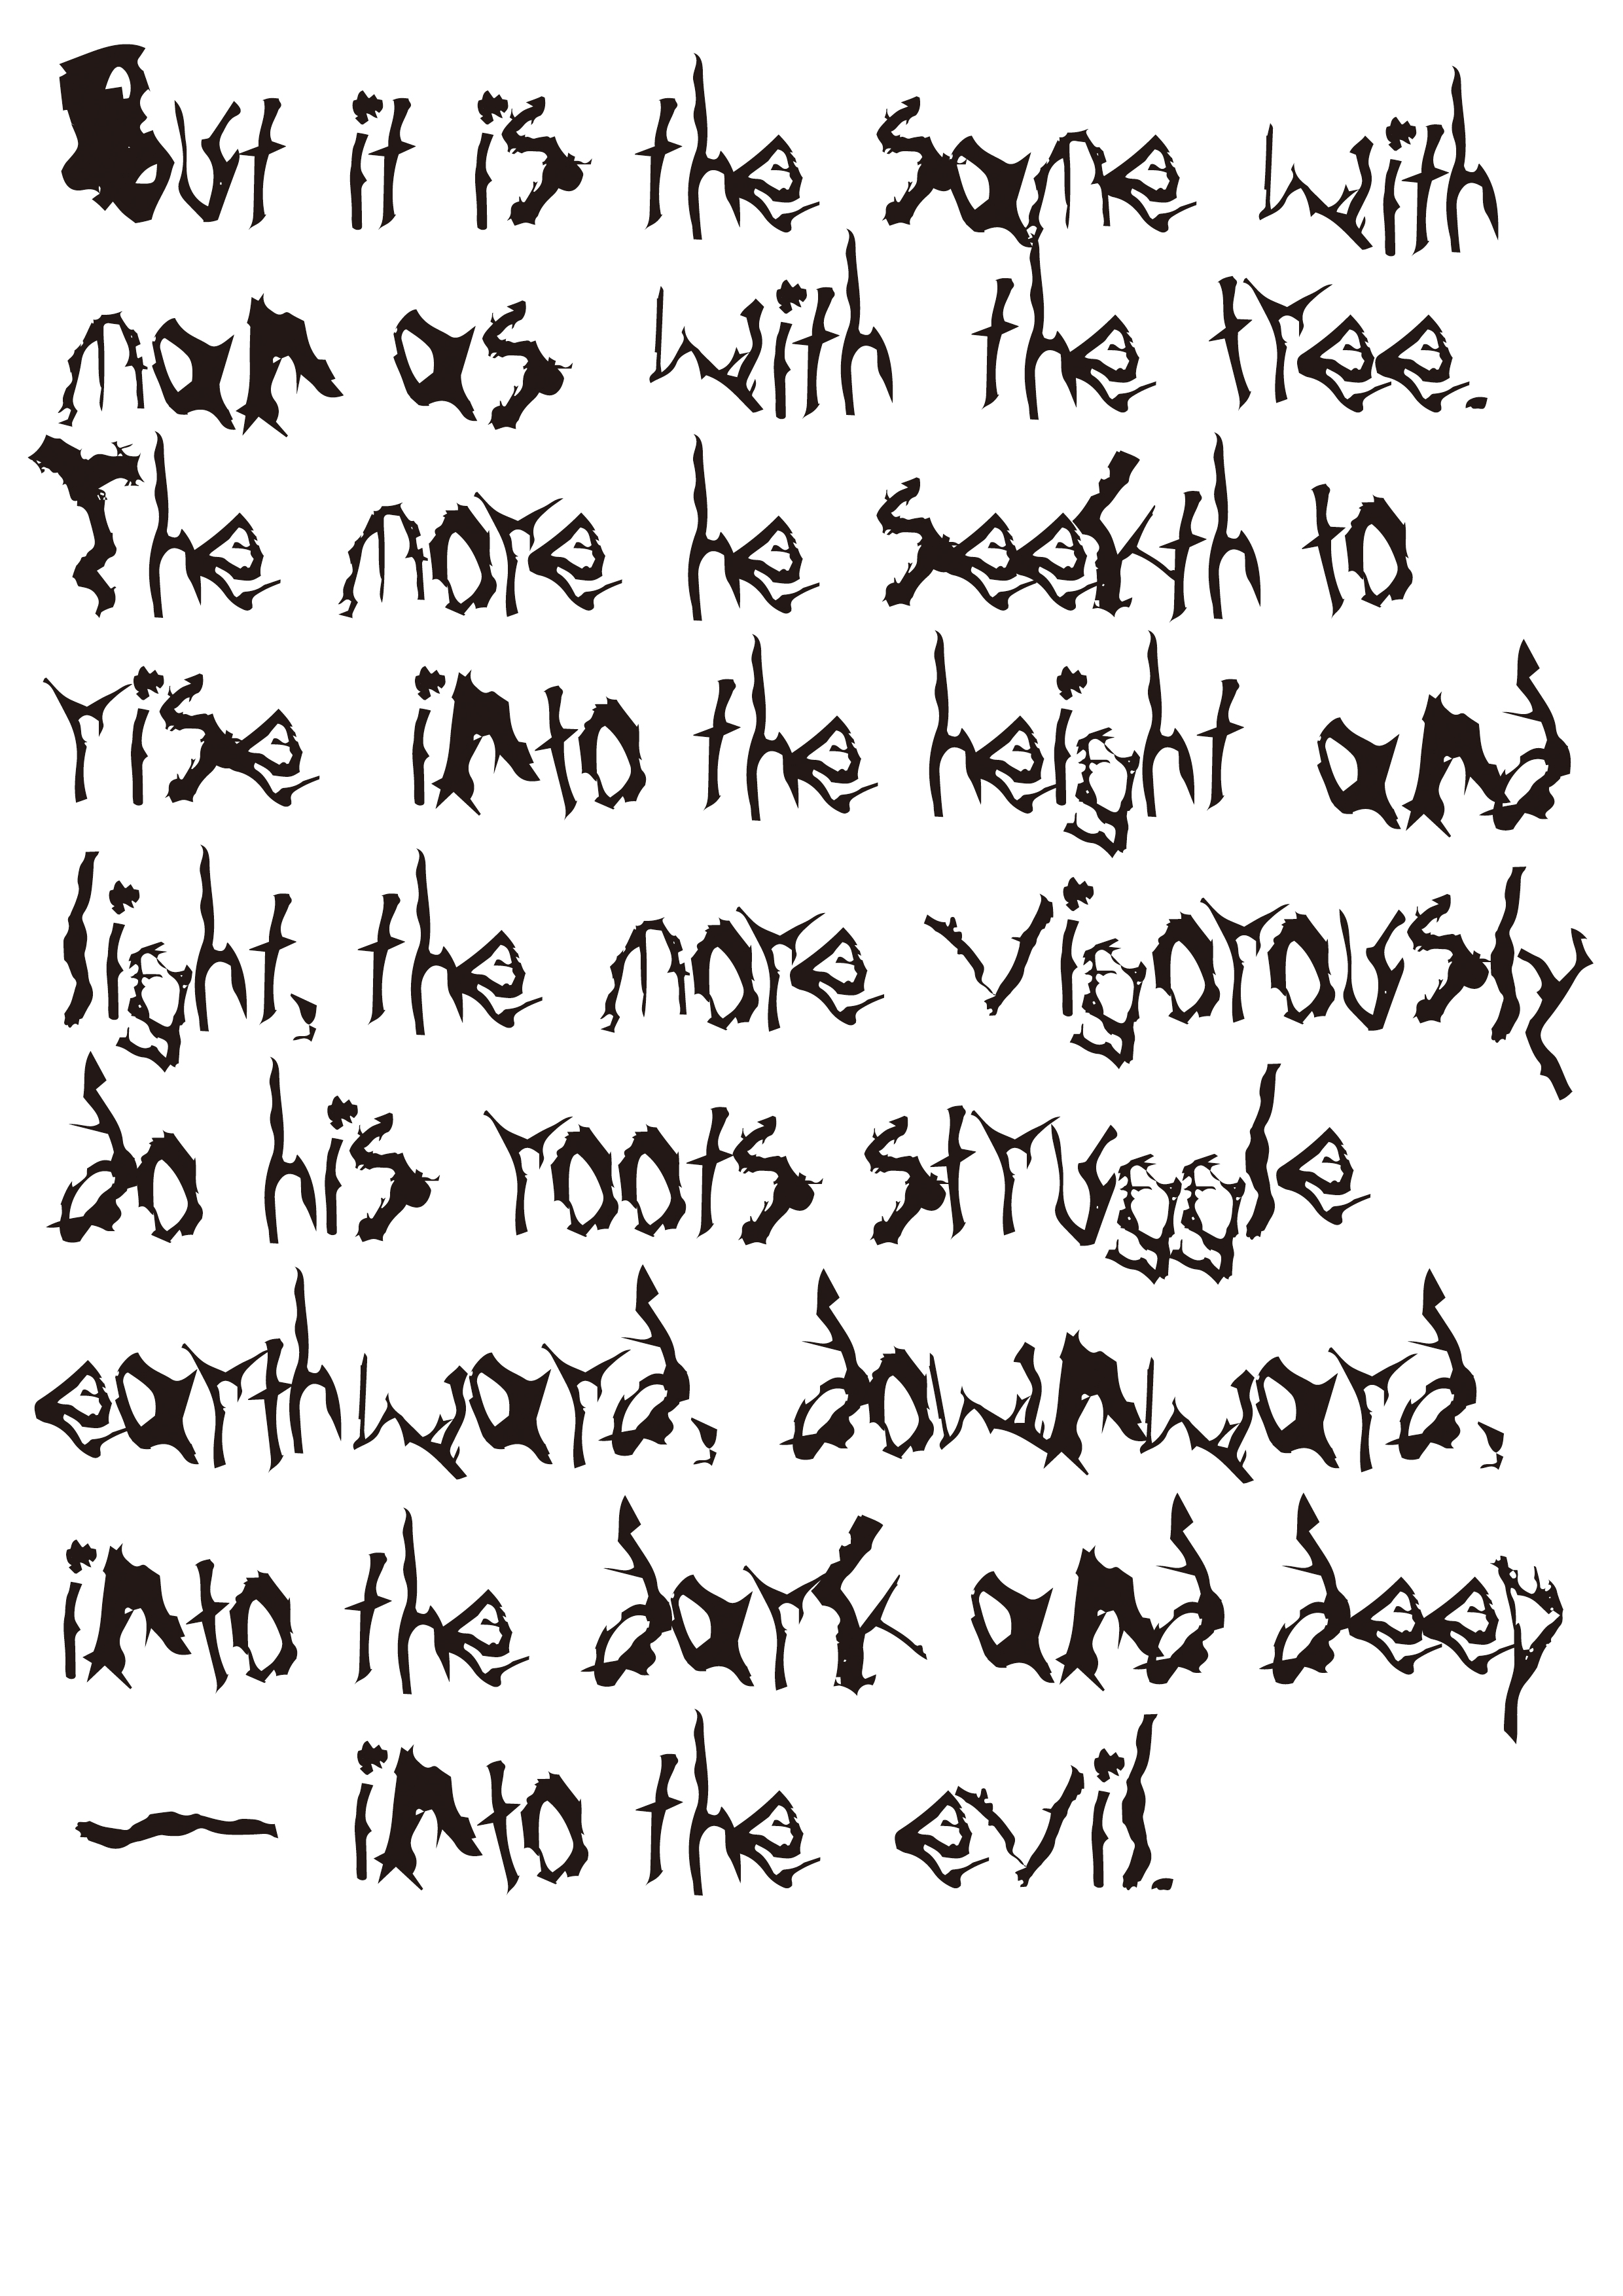 But it is the same with
man as with the tree.
The more he seekth to
rise into the height and
light, the more vigorously
do his roots struggle
earthward, downward,
into the dark and deep
— into the evil.